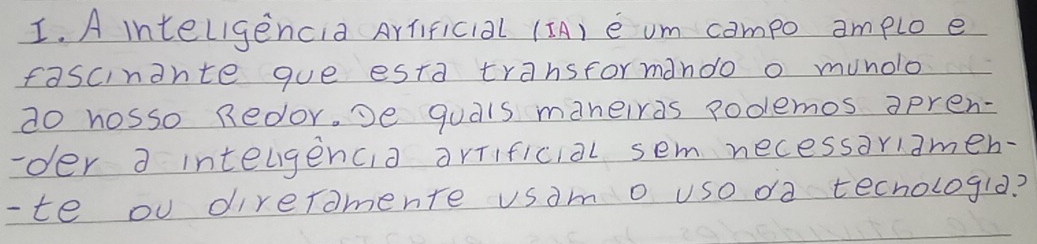 I. A inteligência Artificial (IA) é um campo amplo e
fascinante que esta transformando o mundo
ao nosso Redor. De quais maneiras podemos apren-
-der a inteligência artificial sem necessariamen-
-te ou diretamente usam o uso da tecnologia?